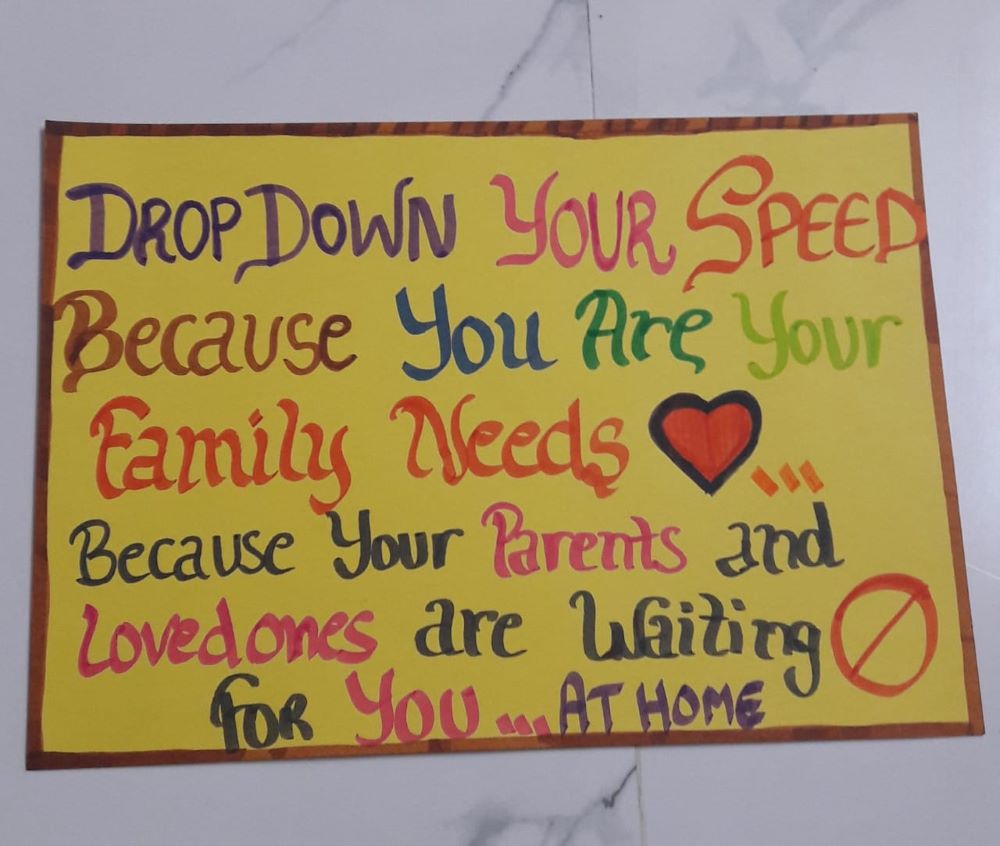 DROP DOWN YOUR SPEED
Because You Are Your
Family Needs ...
Because Your Parents and
Lovedones are Waiting
for You ... AT HOME